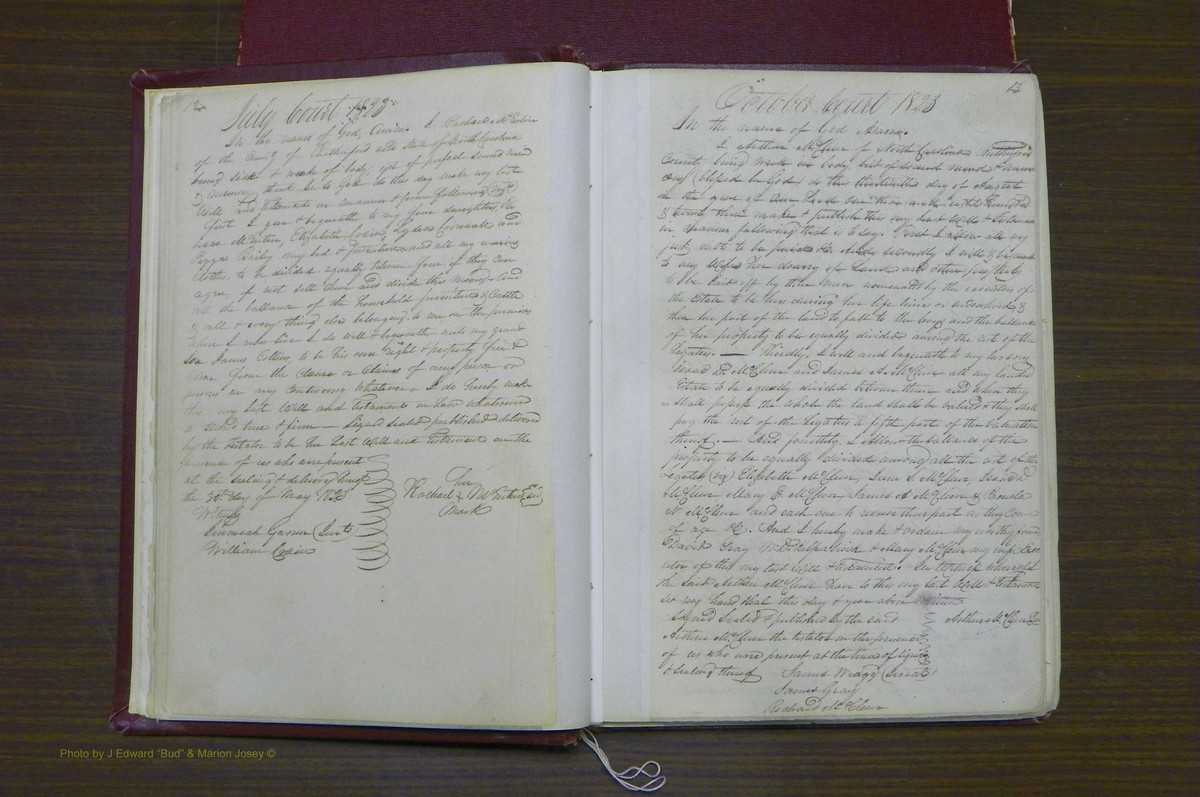 July Court 1823
In the name of God, Amen. I Rachael
of the County of Rutherford and State of North Carolina
being sick & weak of body, yet of perfect sound mind
& memory thank be to God do this day make my last
Will and testament in manner & form following (viz)
first I give & bequeath to my four daughters,
Elizabeth Lydia and
my bed & furniture and all my wearing
clothes to be divided equally between four if they can
agree if not sell them and divide the money and
all the ballance of the household furniture & Cattle
& all & every thing else belonging to me on the premises
where I now live I do will & bequeath unto my grand
Son James Collins to be his own Right & property free &
clear from the Claim or Claims of any person or
persons in any Controversy whatever I do hereby make
this my last Will and testament
Signed sealed published & delivered
by the testator to be her Last Will and testament in the
presence of us who were present
at the sealing & delivery thereof
the day of May 1823
her
Rachael X Seal
Mark
Witness
Garner
William
14
October Court 1823
In the name of God Amen.
I Arthur McClure of North Carolina Rutherford
County being weak in body but of sound mind & mem
ory (blessed be God) do this thirteenth day of August
in the year of our Lord one thousand eight hundred
& twenty three make & publish this my last Will & testament
in manner following that is to say. First I allow all my
just debts to be paid &c. And secondly I will & bequeath
to my Wife her dowry of Land and other property
to be laid off by three men nominated by the executors of
the estate to be hers during her life time or widowhood &
then her part of the land to fall to the boys and the ballance
of her property to be equally divided among the rest of the
legatees. — Thirdly. I will and bequeath to my two sons
Isaac D. McClure and James A. McClure all my landed
Estate to be equally divided between them and when they
shall possess the whole the land shall be valued & they shall
pay the rest of the Legatees a fifth part of the valuation
thereof. — And fourthly, I allow the ballance of the
property to be equally divided among all the rest of the
legatees (viz) Elizabeth McClure, Jane S. McClure, Isaac D
McClure, Mary E. McClure, James A McClure &
N McClure and each one to receive their part as they come
of age &c. And I hereby make & ordain my worthy friend
David Gray & Mary McClure my wife Exe
cutor of this my last Will & testament. In Witness whereof I
the said Arthur McClure have to this my last Will & testament
set my hand & seal this day & year above written
Signed Sealed & published by the said Arthur McClure Seal
Arthur McClure the testator in the presence
of us who were present at the time of signing
& sealing thereof James (Jurat)
James Gray
Richard McClure
Photo by J Edward "Bud" & Marion Josey ©